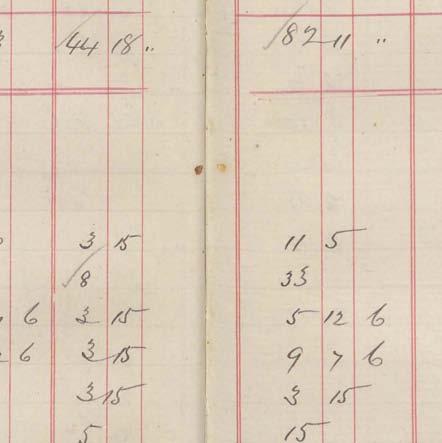 44 18 " 82 11 "
3 15 11 5
8 33
6 3 15 5 12 6
6 3 15 9 7 6
3 15 3 15
5 15